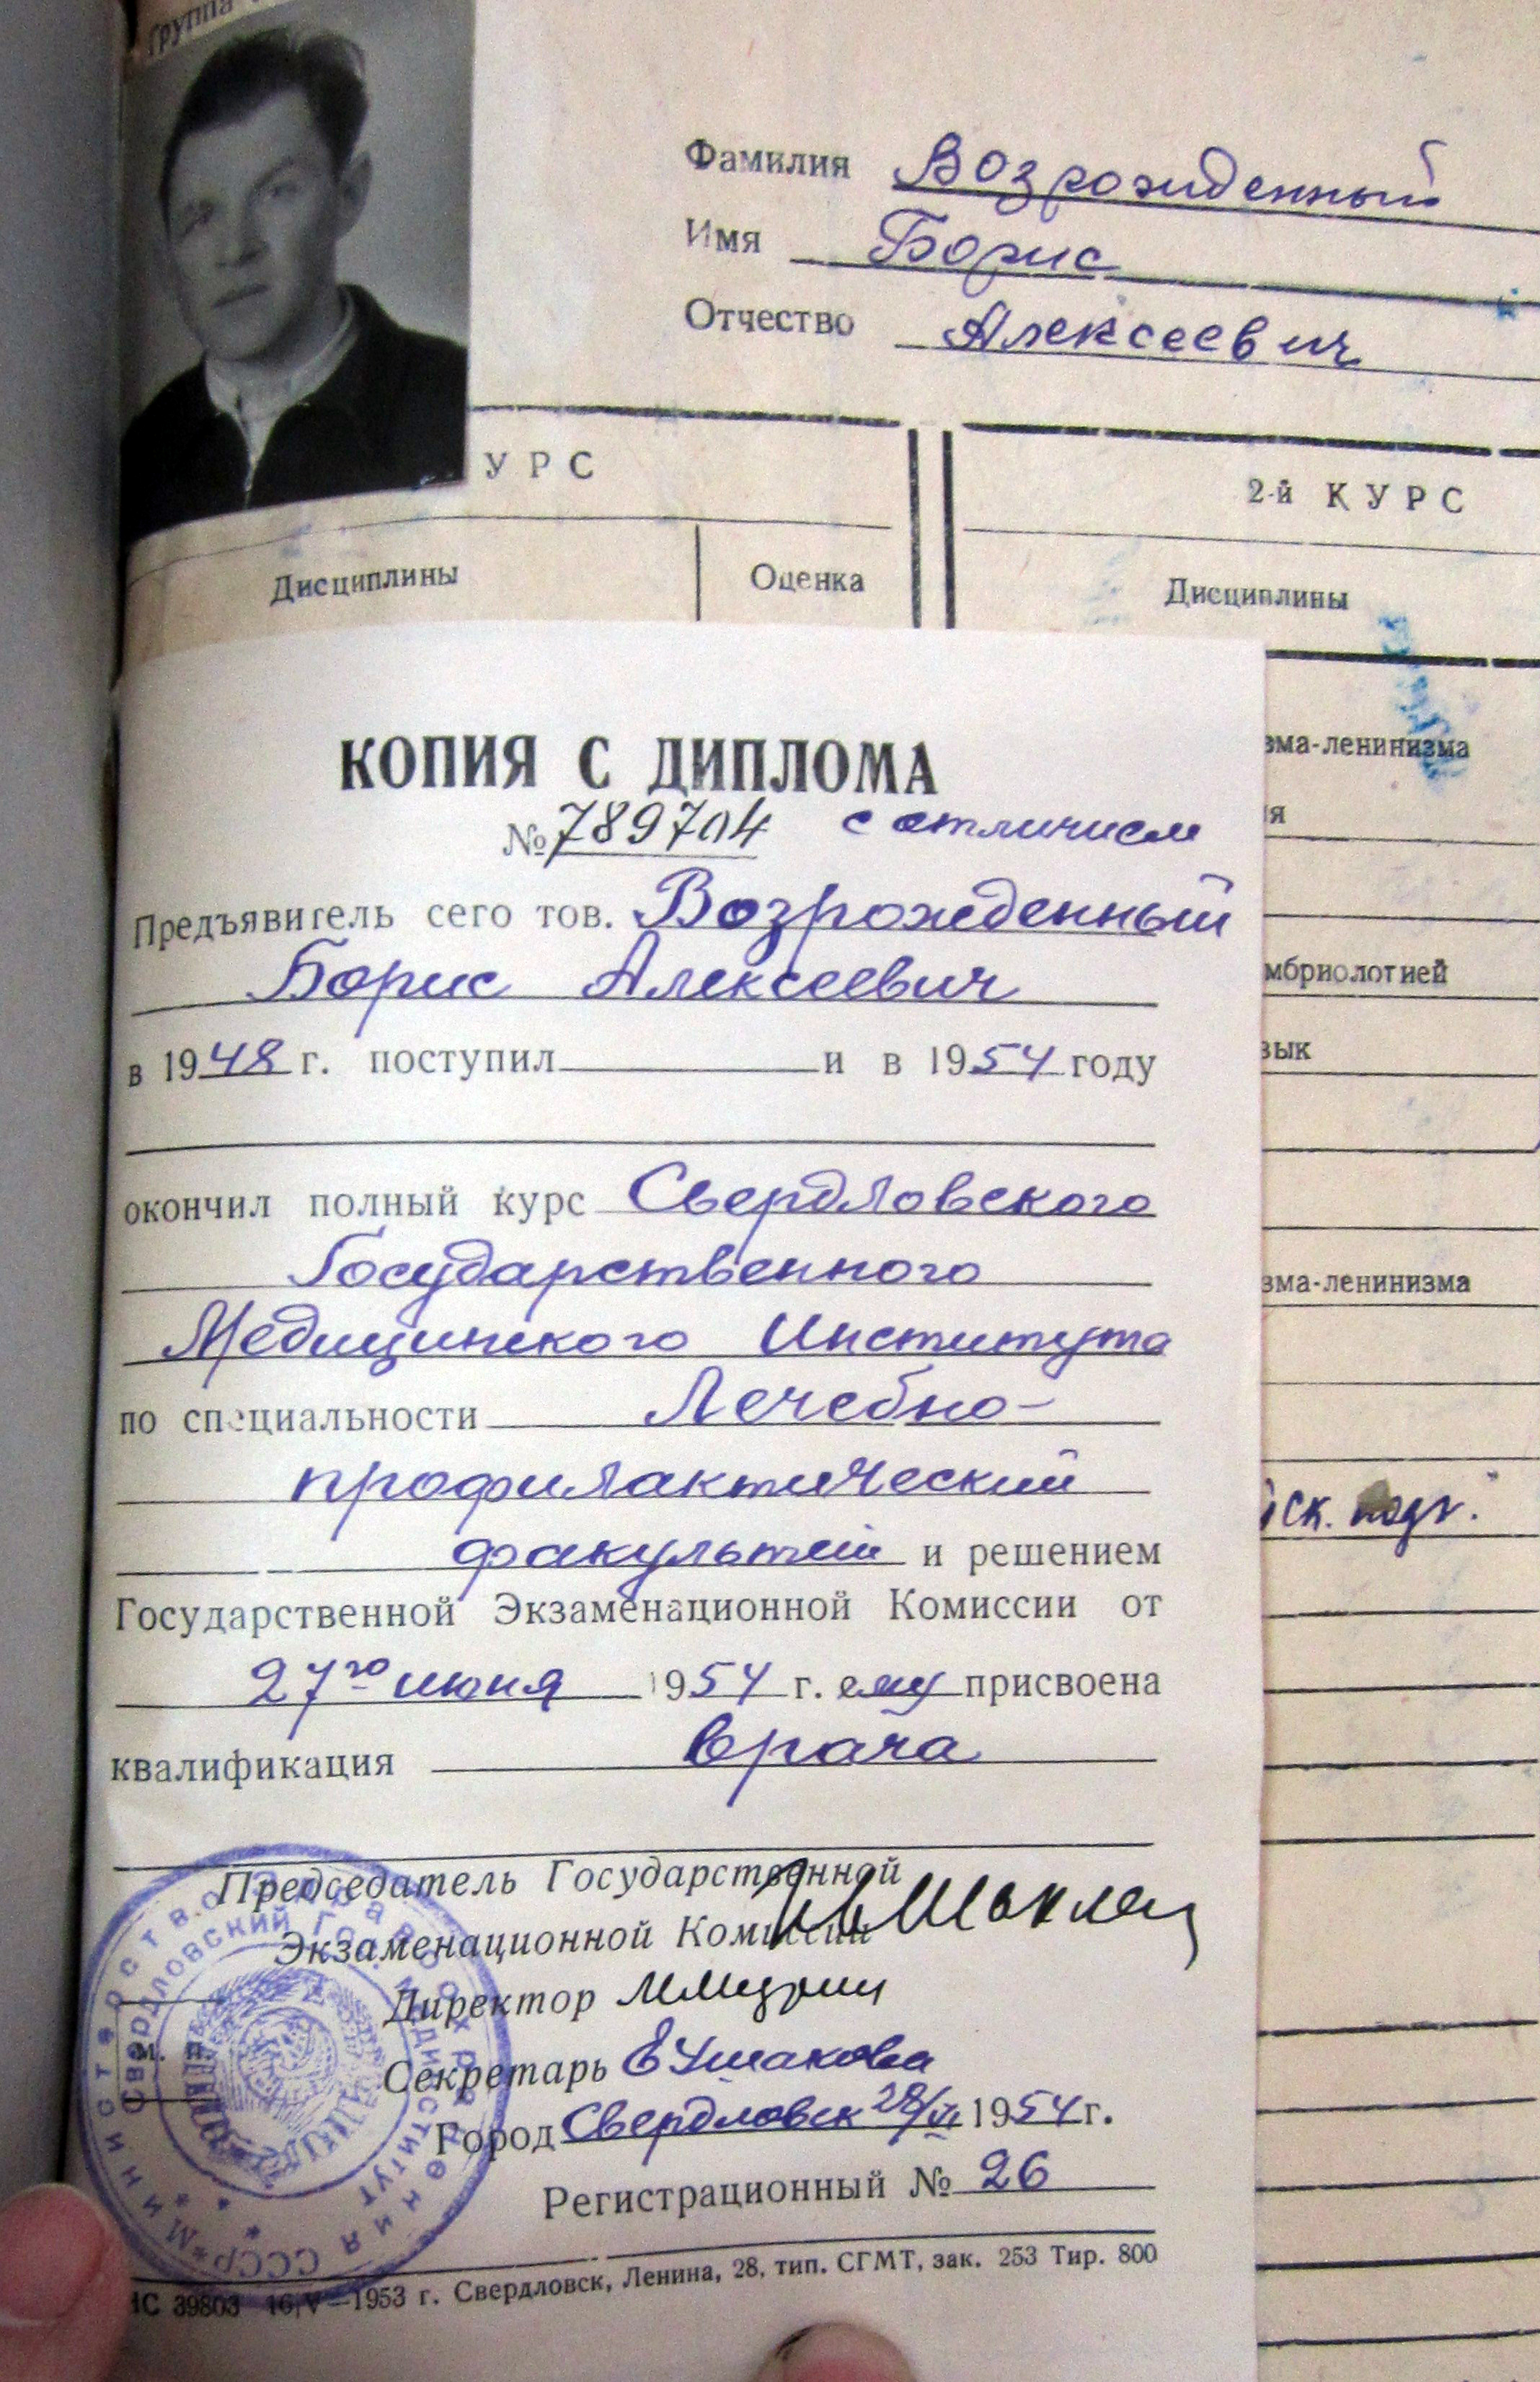 Группа
Фамилия Возрожденный
Имя Борис
Отчество Алексеевич
УРС
2-й КУРС
Дисциплины
Оценка
Дисциплины
зма-ленинизма
я
мбриологией
зык
зма-ленинизма
ск. подг.
КОПИЯ С ДИПЛОМА
№ 789704 с отличием
Предъявитель сего тов. Возрожденный
Борис Алексеевич
в 1948 г. поступил и в 1954 году
окончил полный курс Свердловского
Государственного
Медицинского Института
по специальности Лечебно-
профилактический
факультет и решением
Государственной Экзаменационной Комиссии от
27го июня 1954 г. ему присвоена
квалификация врача
Председатель Государственной
Экзаменационной Комиссии
Директор
Секретарь ЕУшакова
М. П.
Город Свердловск 28/VI 1954 г.
Регистрационный № 26
НС 39803 16/V—1953 г. Свердловск, Ленина, 28, тип. СГМТ, зак. 253 Тир. 800
Министерство Здравоохранения СССР
Свердловский Гос. Мединститут